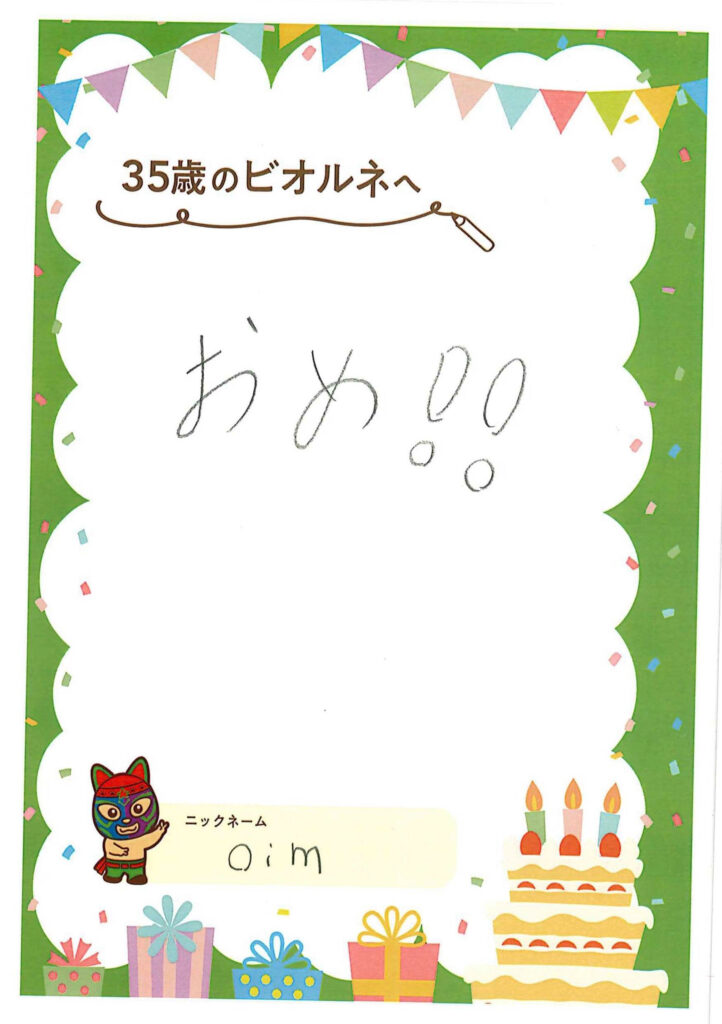 35歳のビオルネへ
おめ!!
ニックネーム
oim